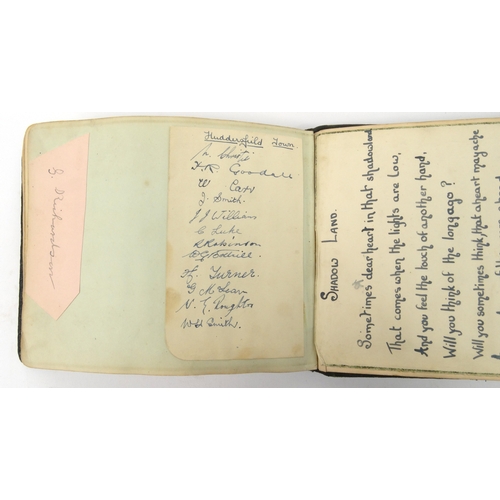 Huddersfield Town
N. Christie
F.R Goodall
W Carr
J. Smith.
J J Williams
C Luke
R Robinson
Hy Turner.
G McLean
N. E. Poughton
W H Smith.
SHADOW LAND.
Sometimes dear heart in that shadowland
That comes when the lights are low,
And you feel the touch of another hand,
Will you think of the longago?
Will you sometimes think that a heart may ache